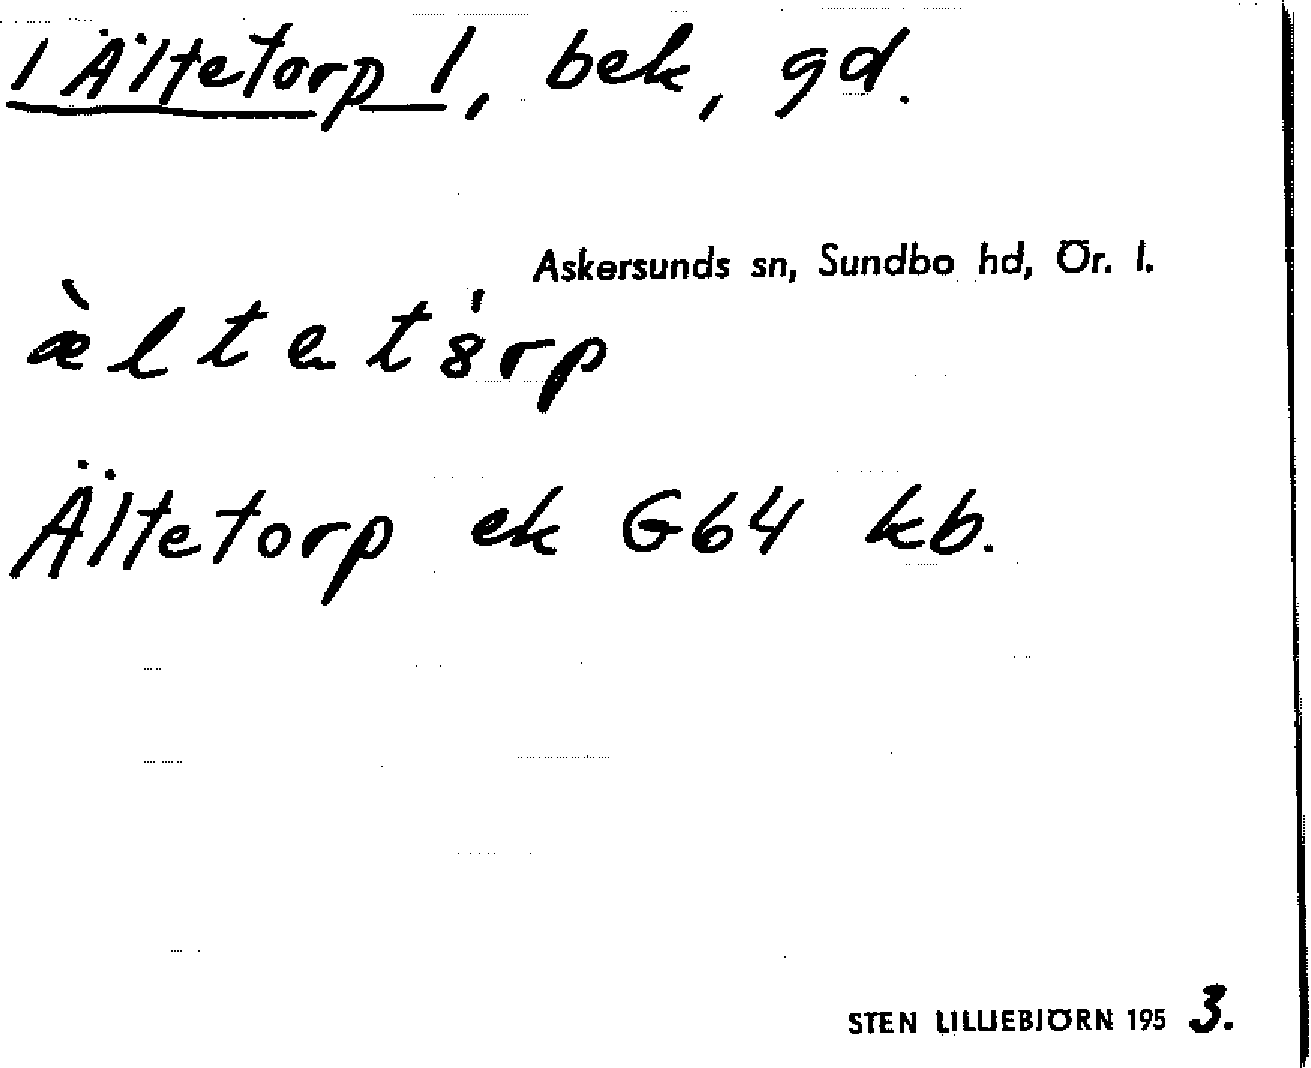 /Ältetorp/, bek, gd.
Askersunds sn, Sundbo hd, Ör. l.
æ̀ltatȣ́rp
Ältetorp ek G64 kb.
STEN LILLIEBJÖRN 1953.